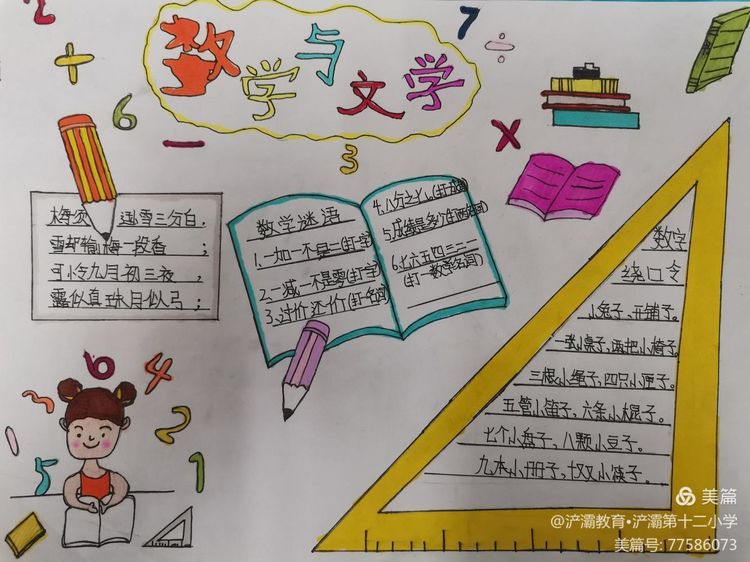 数学与文学
2
+
7
÷
6
-
3
x
梅须逊雪三分白,
雪却输梅一段香;
可怜九月初三夜,
露似真珠月似弓;
数学谜语
1.一加一不是二(打一字)
2.一减一不是零(打一字)
3.讨价还价(打一名词)
4.八分之七(打一成语)
5.成绩是多少(打两名词)
6.七六五四三二一
(打一数学名词)
数字
绕口令
小兔子、开铺子。
一张小桌子,两把小椅子。
三根小绳子,四只小匣子。
五管小笛子,六条小棍子。
七个小盘子,八颗小豆子。
九本小册子,十双小筷子。
6
4
3
2
1
5
1
美篇
@浐灞教育•浐灞第十二小学
美篇号:77586073